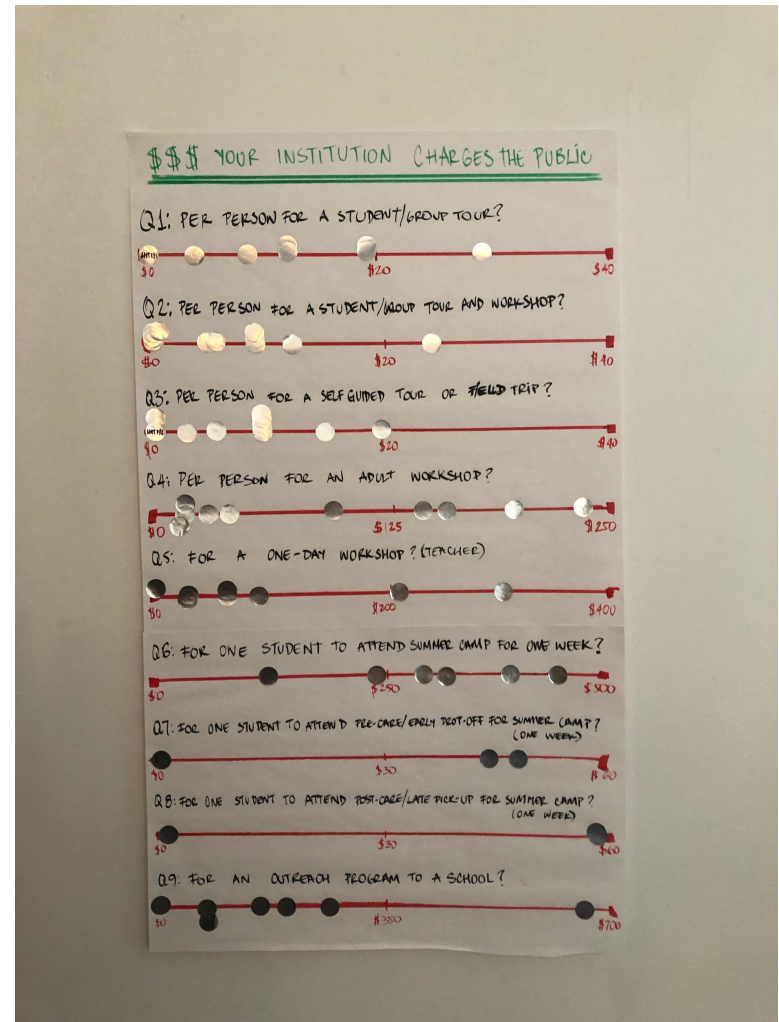 $$$ YOUR INSTITUTION CHARGES THE PUBLIC
Q1: PER PERSON FOR A STUDENT/GROUP TOUR?
$0 $20 $40
Q2: PER PERSON FOR A STUDENT/GROUP TOUR AND WORKSHOP?
$0 $20 $40
Q3: PER PERSON FOR A SELF GUIDED TOUR OR FIELD TRIP?
$0 $20 $40
Q4: PER PERSON FOR AN ADULT WORKSHOP?
$0 $125 $250
Q5: FOR A ONE-DAY WORKSHOP? (TEACHER)
$0 $200 $400
Q6: FOR ONE STUDENT TO ATTEND SUMMER CAMP FOR ONE WEEK?
$0 $250 $500
Q7: FOR ONE STUDENT TO ATTEND PRE-CARE/EARLY DROT-OFF FOR SUMMER CAMP?
(ONE WEEK)
$0 $30 $60
Q8: FOR ONE STUDENT TO ATTEND POST-CARE/LATE PICK-UP FOR SUMMER CAMP?
(ONE WEEK)
$0 $30 $60
Q9: FOR AN OUTREACH PROGRAM TO A SCHOOL?
$0 $350 $700